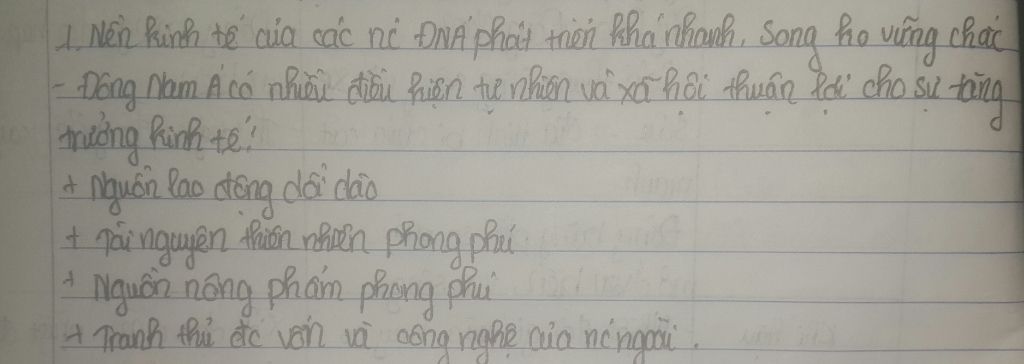 1. Nền kinh tế của các nc ĐNÁ phát triển khá nhanh, song ko vững chắc
- Đông Nam Á có nhiều điều kiện tự nhiên và xã hội thuận lợi cho sự tăng
trưởng kinh tế:
+ Nguồn lao động dồi dào
+ Tài nguyên thiên nhiên phong phú
+ Nguồn nông phẩm phong phú
+ Tranh thủ đc vốn và công nghệ của nc ngoài.